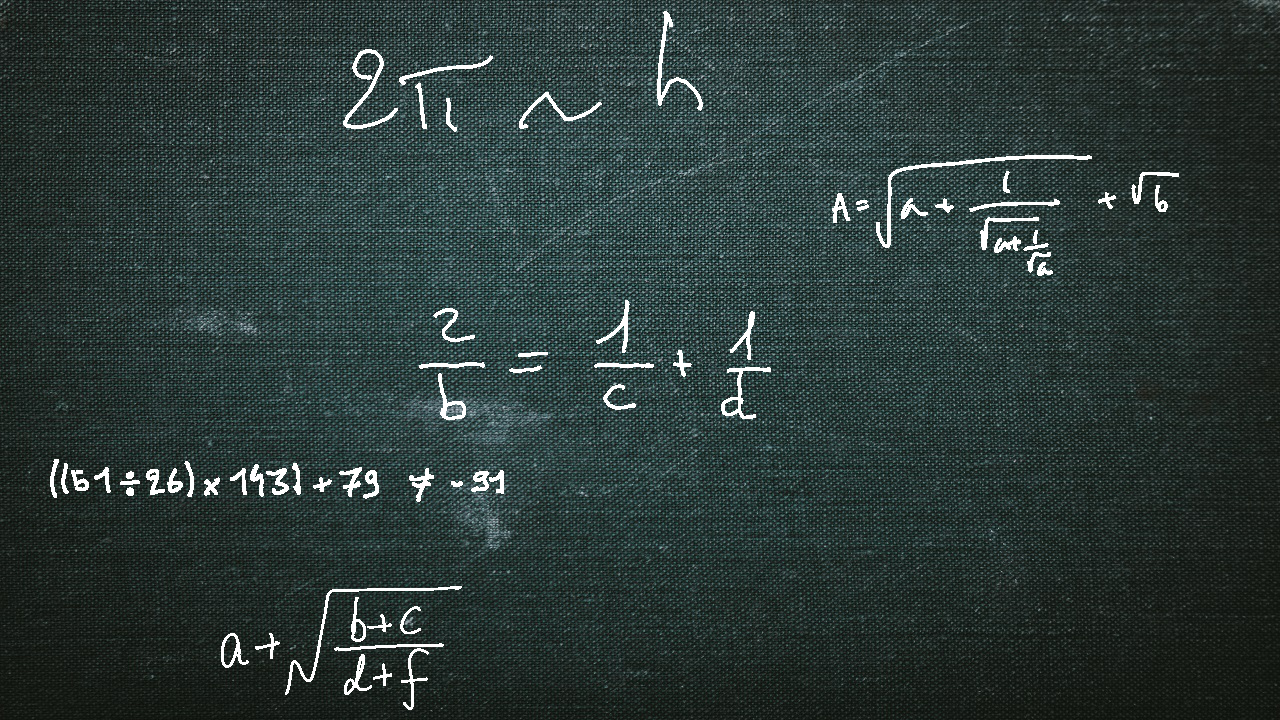 2π ~ h
A = √(a + 1/√(a + 1/√a)) + √b
2/b = 1/c + 1/d
((51 ÷ 26) × 143) + 79 ≠ -91
a + √((b + c)/(d + f))